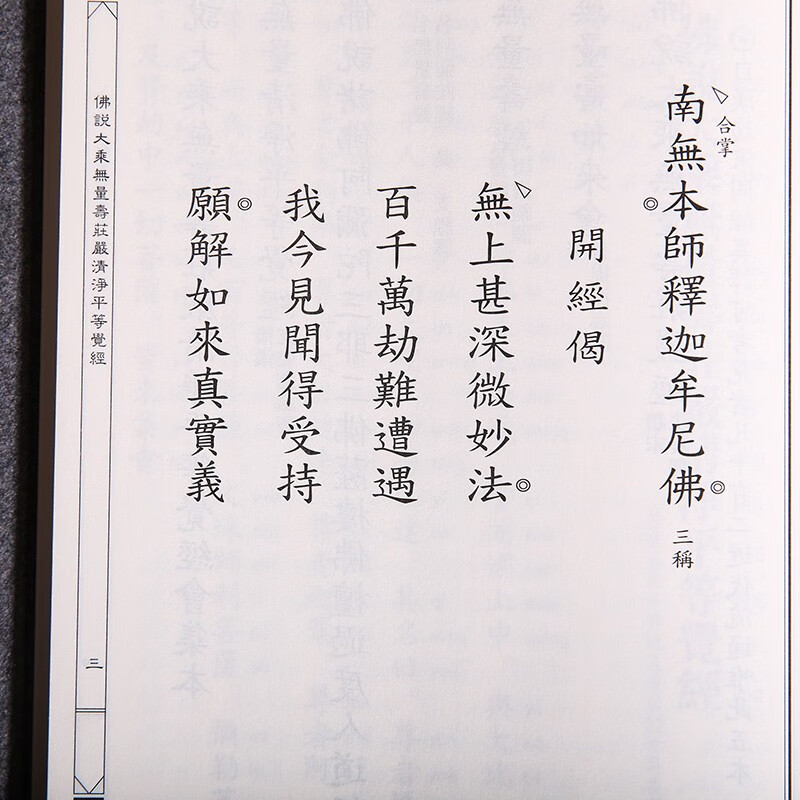 合掌
南無本師釋迦牟尼佛
三稱
開經偈
無上甚深微妙法
百千萬劫難遭遇
我今見聞得受持
願解如來真實義
佛說大乘無量壽莊嚴清淨平等覺經
三